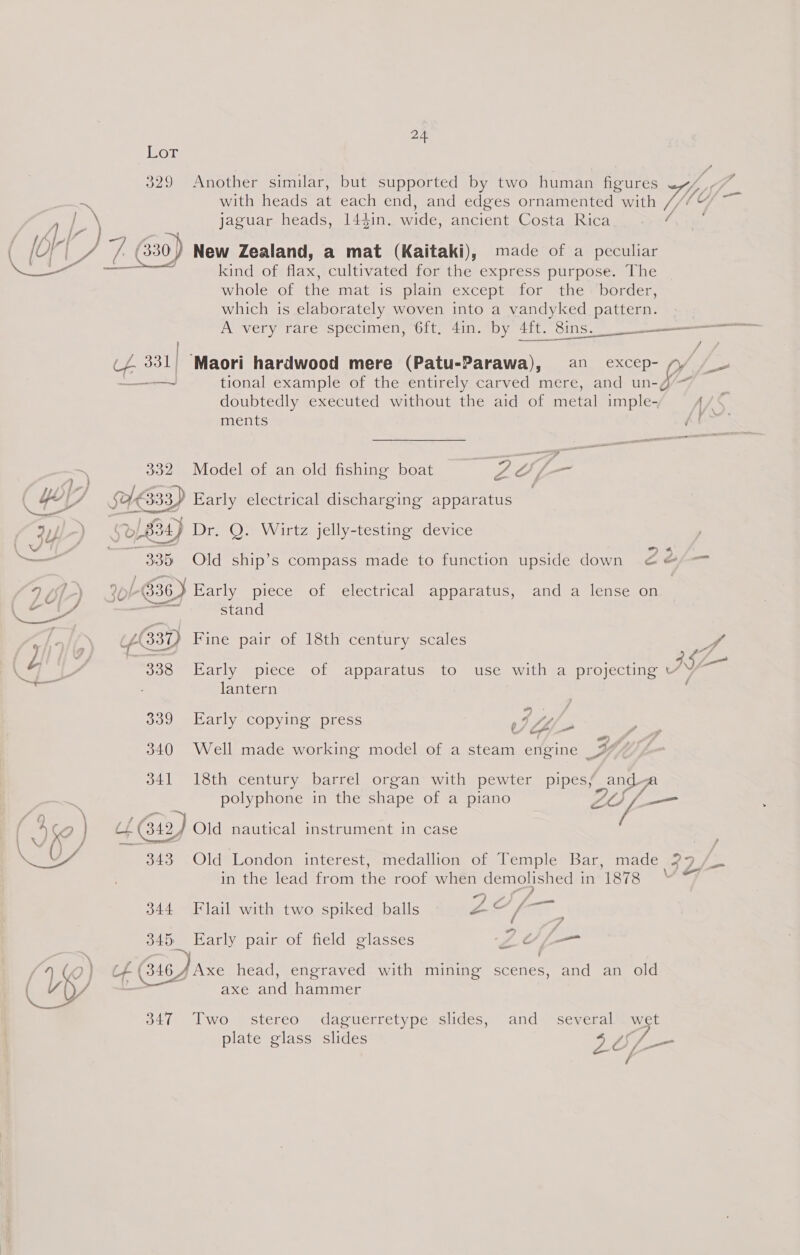 24
Lot
329 Another similar, but supported by two human figures
with heads at each end, and edges ornamented with
jaguar heads, 14½in. wide, ancient Costa Rica
330 New Zealand, a mat (Kaitaki), made of a peculiar
kind of flax, cultivated for the express purpose. The
whole of the mat is plain except for the border,
which is elaborately woven into a vandyked pattern.
A very rare specimen, 6ft. 4in. by 4ft. 8ins.
331 Maori hardwood mere (Patu-Parawa), an excep-
tional example of the entirely carved mere, and un-
doubtedly executed without the aid of metal imple-
ments
332 Model of an old fishing boat 20/-
333 Early electrical discharging apparatus
334 Dr. Q. Wirtz jelly-testing device
335 Old ship's compass made to function upside down
336 Early piece of electrical apparatus, and a lense on
stand
337 Fine pair of 18th century scales
338 Early piece of apparatus to use with a projecting
lantern
339 Early copying press
340 Well made working model of a steam engine
341 18th century barrel organ with pewter pipes, and a
polyphone in the shape of a piano
342 Old nautical instrument in case
343 Old London interest, medallion of Temple Bar, made
in the lead from the roof when demolished in 1878
344 Flail with two spiked balls 20/-
345 Early pair of field glasses 20/-
346 Axe head, engraved with mining scenes, and an old
axe and hammer
347 Two stereo daguerretype slides, and several wet
plate glass slides